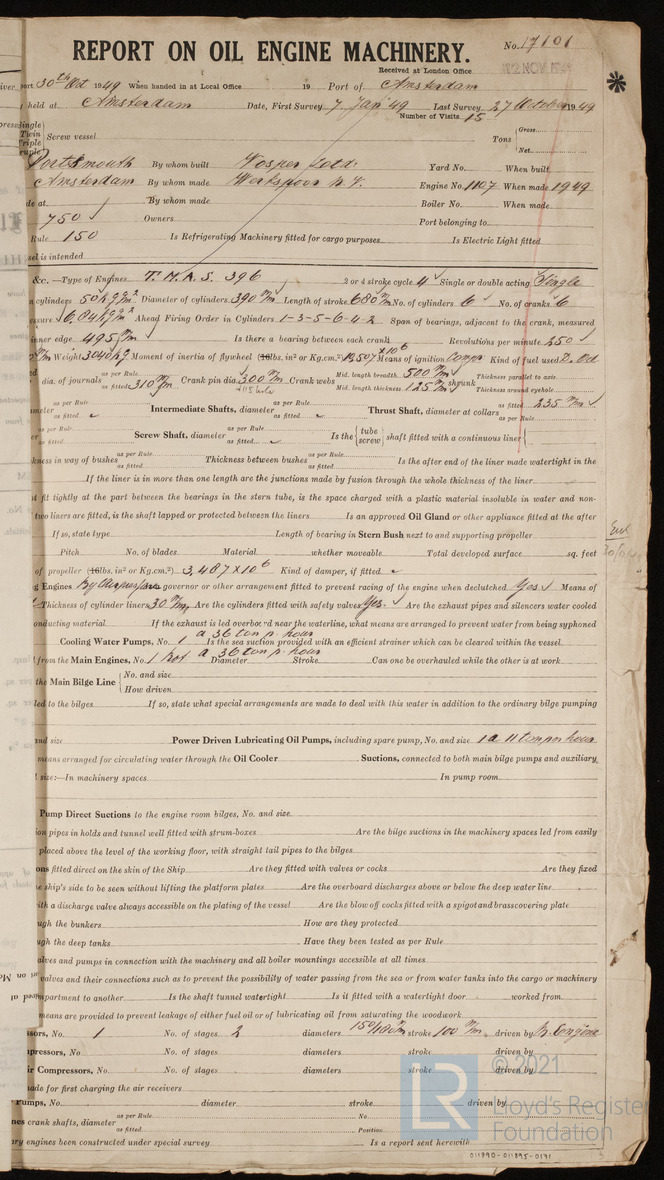 REPORT ON OIL ENGINE MACHINERY.
No. 17101
Received at London Office
12 NOV
port 30th Oct 1949 When handed in at Local Office 19 Port of Amsterdam
held at Amsterdam Date, First Survey 7 Jan 49 Last Survey 27 October 1949
Number of Visits 15
Single
Twin
Triple
Screw vessel
Tons Gross
Net
Portsmouth By whom built Vosper Ltd. Yard No. When built
Amsterdam By whom made Werkspoor N.V. Engine No. 1107 When made 1949
de at By whom made Boiler No. When made
750 Owners Port belonging to
Rule 150 Is Refrigerating Machinery fitted for cargo purposes Is Electric Light fitted
sel is intended
&c. —Type of Engines T.M.A.S. 396 2 or 4 stroke cycle 4 Single or double acting Single
n cylinders 50 kg/cm² Diameter of cylinders 390 m/m Length of stroke 680 m/m No. of cylinders 6 No. of cranks 6
essure 6.04 kg/cm² Ahead Firing Order in Cylinders 1-3-5-6-4-2 Span of bearings, adjacent to the crank, measured
nner edge 495 m/m Is there a bearing between each crank Revolutions per minute 250
Weight 3040 kg Moment of inertia of flywheel (16lbs. in² or Kg.cm.²) ×10⁶ Means of ignition Compr. Kind of fuel used D. Oil
dia. of journals as per Rule as fitted 310 m/m Crank pin dia. 300 m/m Crank webs Mid. length breadth 500 m/m Mid. length thickness 125 m/m shrunk Thickness parallel to axis Thickness around eyehole
+115 hole
ameter as per Rule as fitted Intermediate Shafts, diameter as per Rule as fitted Thrust Shaft, diameter at collars as fitted 235 m/m as per Rule
er as per Rule as fitted Screw Shaft, diameter as per Rule as fitted Is the { tube screw } shaft fitted with a continuous liner
kness in way of bushes as per Rule as fitted Thickness between bushes as per Rule as fitted Is the after end of the liner made watertight in the
If the liner is in more than one length are the junctions made by fusion through the whole thickness of the liner
t fit tightly at the part between the bearings in the stern tube, is the space charged with a plastic material insoluble in water and non-
two liners are fitted, is the shaft lapped or protected between the liners Is an approved Oil Gland or other appliance fitted at the after
If so, state type Length of bearing in Stern Bush next to and supporting propeller
Pitch No. of blades Material whether moveable Total developed surface sq. feet
of propeller (16lbs. in² or Kg.cm.²) 3,487×10⁶ Kind of damper, if fitted
g Engines governor or other arrangement fitted to prevent racing of the engine when declutched Yes Means of
Thickness of cylinder liners 30 m/m Are the cylinders fitted with safety valves Yes Are the exhaust pipes and silencers water cooled
onducting material If the exhaust is led overboard near the waterline, what means are arranged to prevent water from being syphoned
Cooling Water Pumps, No. 1 a 36 ton p. hour Is the sea suction provided with an efficient strainer which can be cleared within the vessel
from the Main Engines, No. 1 a 36 ton p. hour Diameter Stroke Can one be overhauled while the other is at work
the Main Bilge Line { No. and size
How driven
led to the bilges If so, state what special arrangements are made to deal with this water in addition to the ordinary bilge pumping
and size Power Driven Lubricating Oil Pumps, including spare pump, No. and size 1 a 11 ton per hour
means arranged for circulating water through the Oil Cooler Suctions, connected to both main bilge pumps and auxiliary
size:—In machinery spaces In pump room
Pump Direct Suctions to the engine room bilges, No. and size
ion pipes in holds and tunnel well fitted with strum-boxes Are the bilge suctions in the machinery spaces led from easily
placed above the level of the working floor, with straight tail pipes to the bilges
ons fitted direct on the skin of the Ship Are they fitted with valves or cocks Are they fixed
e ship's side to be seen without lifting the platform plates Are the overboard discharges above or below the deep water line
ith a discharge valve always accessible on the plating of the vessel Are the blow off cocks fitted with a spigot and brass covering plate
ugh the bunkers How are they protected
ugh the deep tanks Have they been tested as per Rule
alves and pumps in connection with the machinery and all boiler mountings accessible at all times
valves and their connections such as to prevent the possibility of water passing from the sea or from water tanks into the cargo or machinery
mpartment to another Is the shaft tunnel watertight Is it fitted with a watertight door worked from
means are provided to prevent leakage of either fuel oil or of lubricating oil from saturating the woodwork
ssors, No. 1 No. of stages 2 diameters stroke 100 m/m driven by M. Engine
mpressors, No No. of stages diameters stroke driven by
ir Compressors, No. No. of stages diameters stroke driven by
ade for first charging the air receivers
Pumps, No. diameter stroke driven by
nes crank shafts, diameter as per Rule as fitted No Position
ry engines been constructed under special survey Is a report sent herewith
011890-011895-0191
LR
© 2021
Lloyd's Register
Foundation